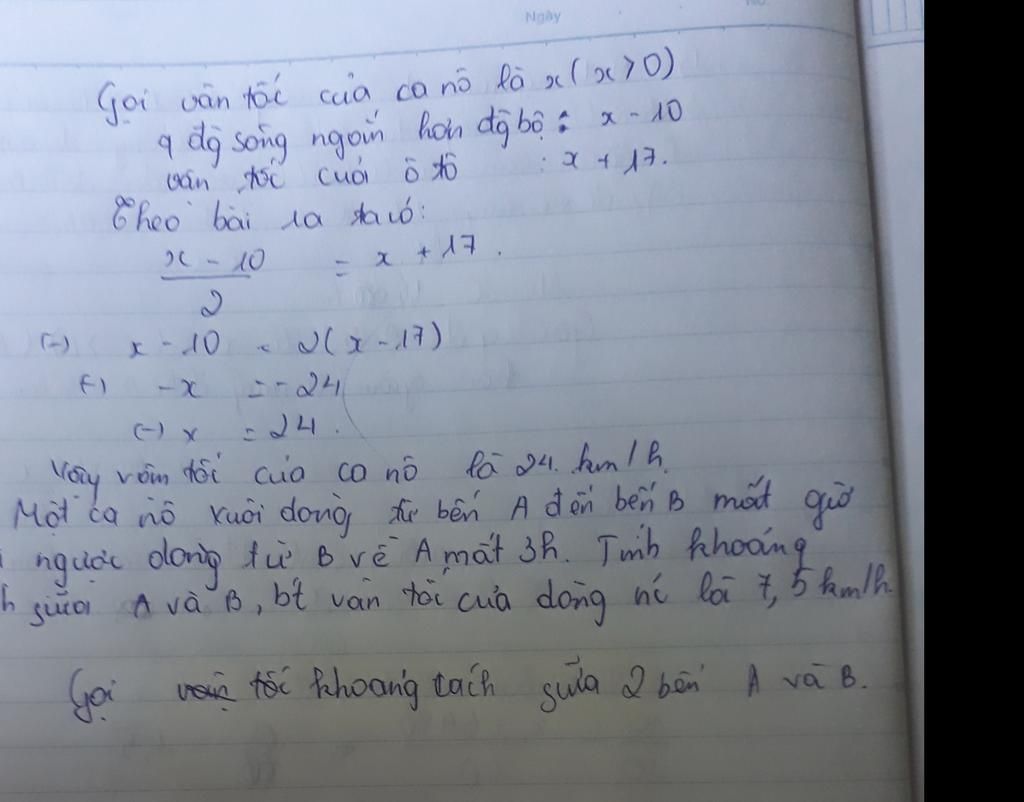 Ngày
Gọi vân tốc của ca nô là x ( x > 0 )
q đg sông ngoắn hơn đg bộ : x - 10
vân tốc cuối ô tô : x + 17.
Theo bài ra ta có:
x - 10 / 2 = x + 17.
(-) x - 10 = 2( x - 17)
(-) -x = -24
(-) x = 24.
Vây vâm tốc của ca nô là 24. km/h.
Một ca nô xuôi dong từ bến A đến bến B mất giờ
ngược dong từ B về A mất 3h. Tính khoảng
h giữa A và B, bt vân tốc của dòng nc là 7,5 km/h.
Gọi tốc khoang cách giữa 2 bến A và B.